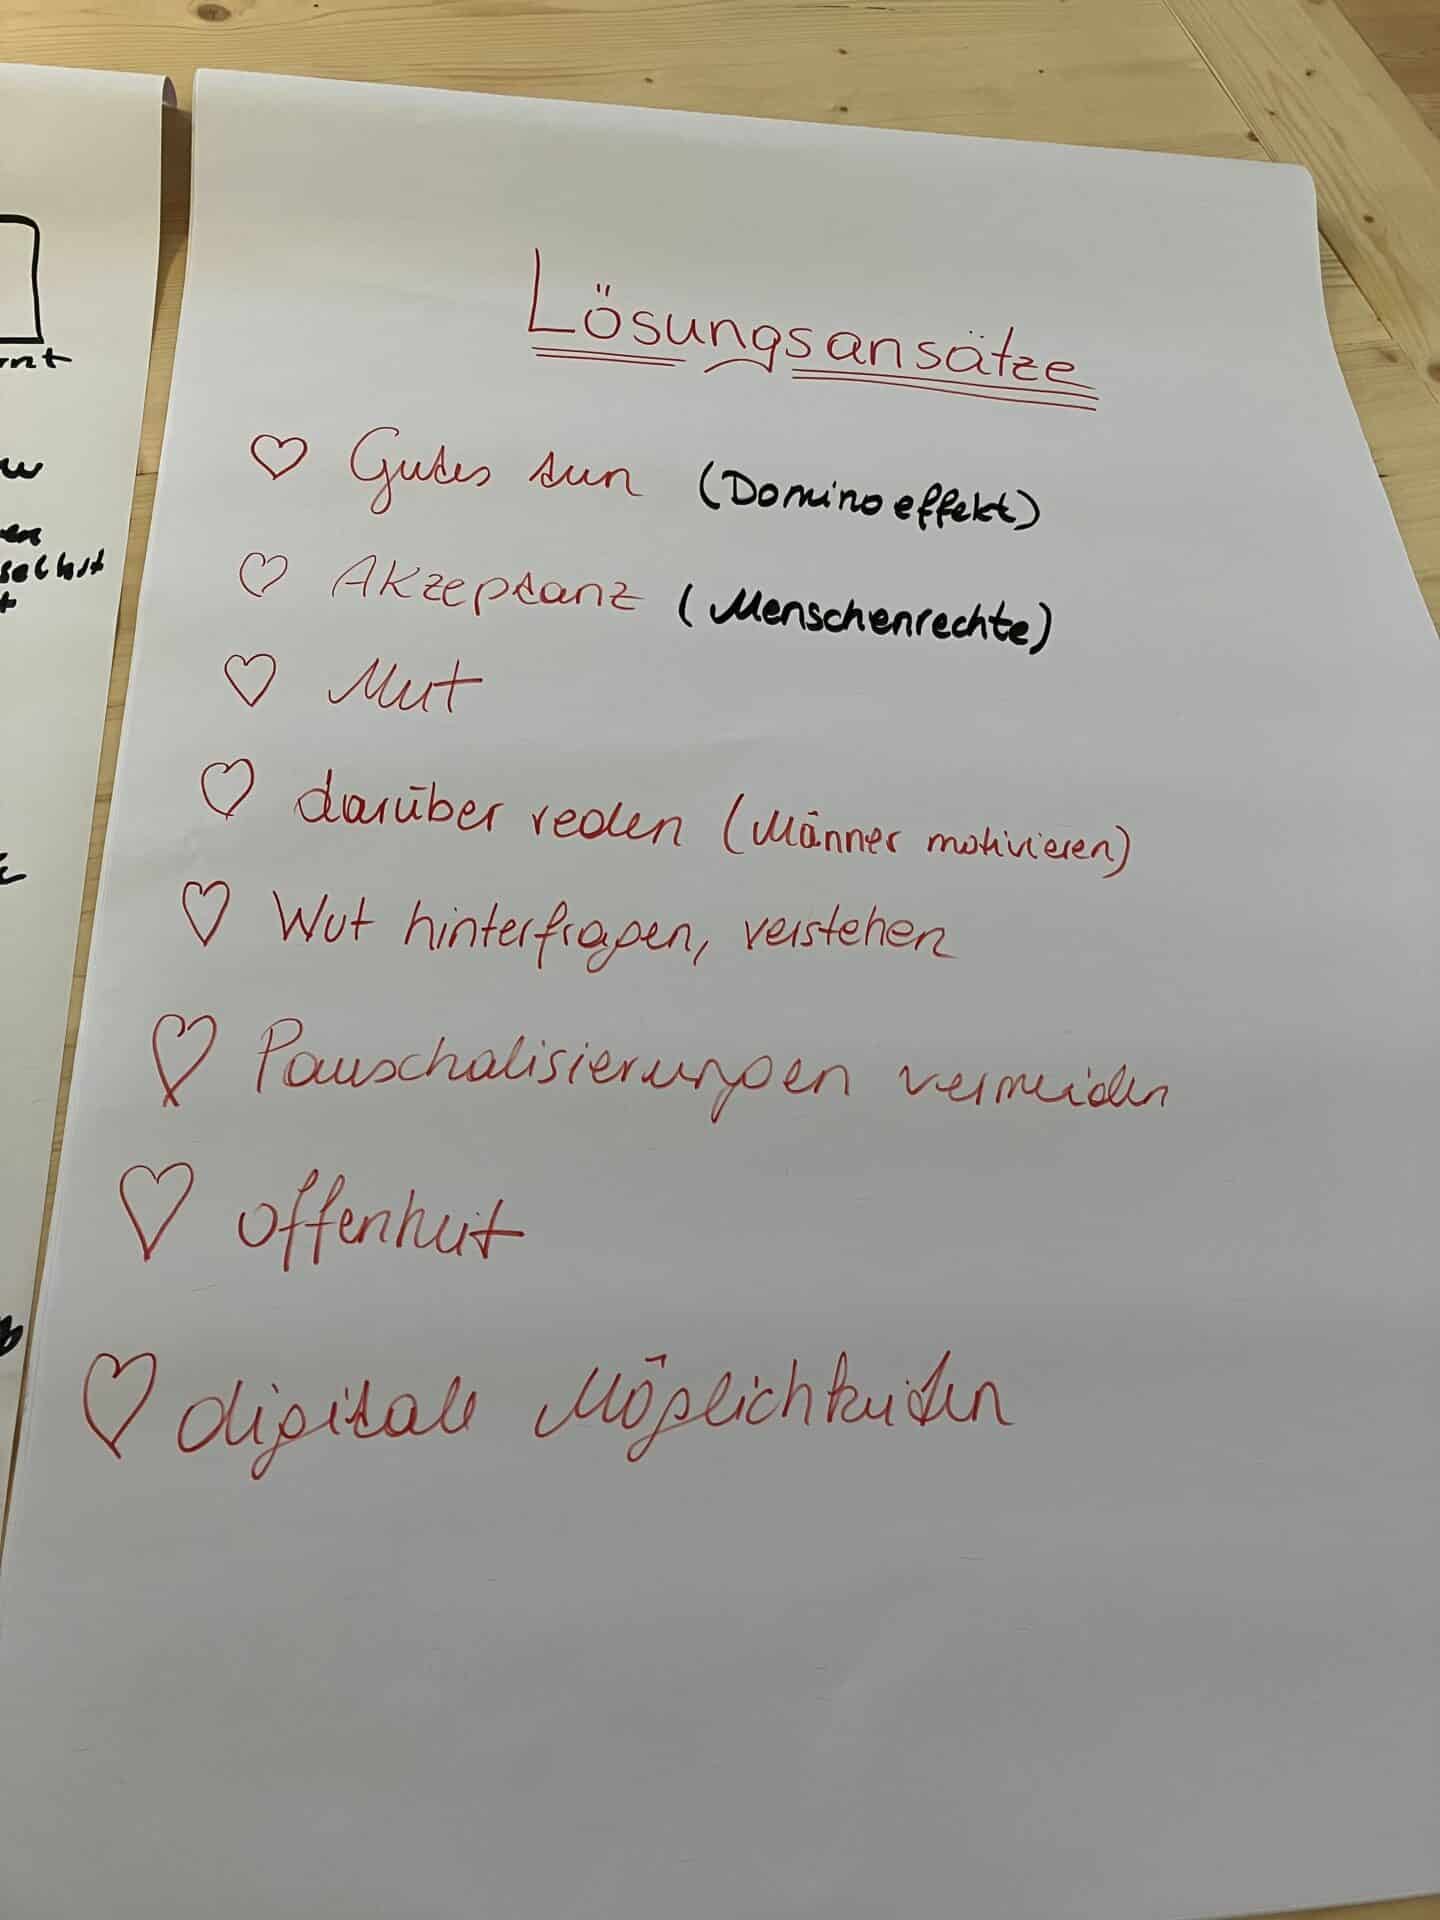 Lösungsansätze
♡ Gutes tun (Dominoeffekt)
♡ Akzeptanz (Menschenrechte)
♡ Mut
♡ darüber reden (Männer motivieren)
♡ Wut hinterfragen, verstehen
♡ Pauschalisierungen vermeiden
♡ Offenheit
♡ digitale Möglichkeiten
selbst